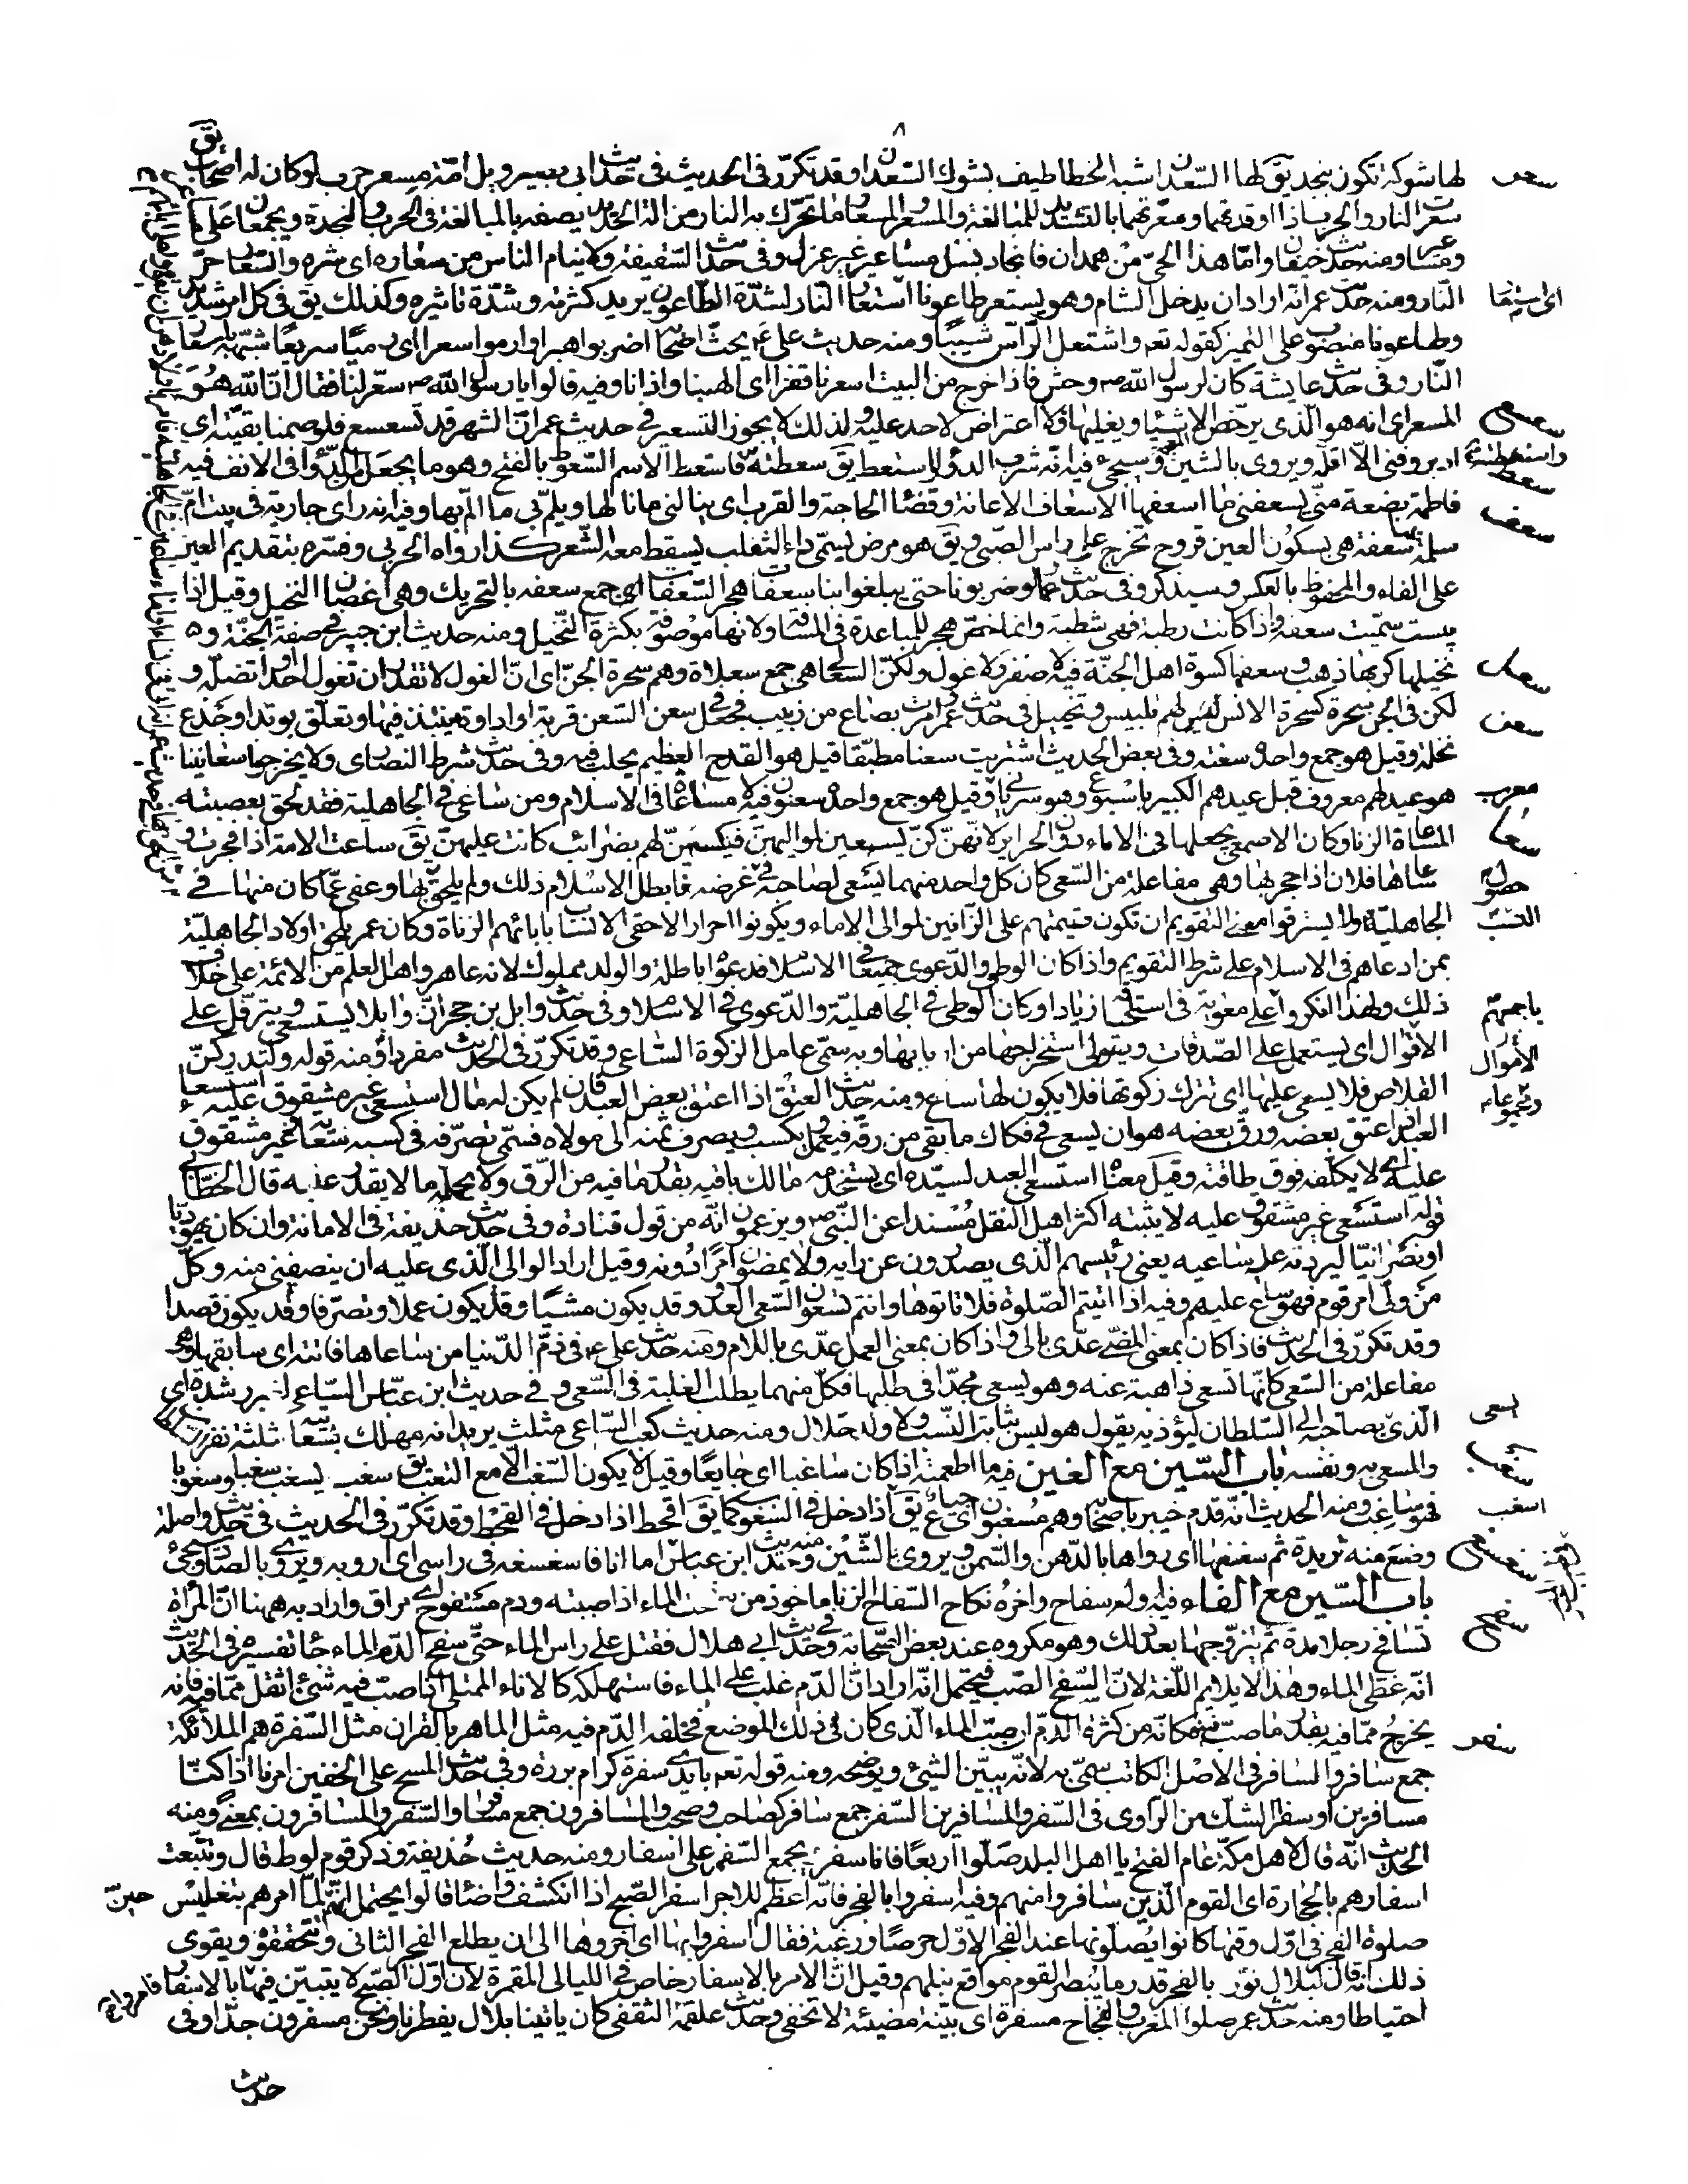 لها شوكة تكون بنجد يق لها السعدان شبه الخطاطيف بشوك السعدان وقد تكرر فى الحديث فى حديث ابى بصير ويل امّه مسعر حرب لو كان له اصحاب يق
سعر
سعرت النار والحرب اذا اوقدتهما وسعرتهما بالتشديد للمبالغة والمسعر والمسعار ما تحرك به النار من الة الحديد يصفه بالمبالغة فى الحرب والنجدة ويجمعان على مساعر
ومنه حديث خيفان واما هذا الحىّ من همدان فانجاد بسل مساعير غير عزل وفى حديث السقيفة ولا ينام الناس من سعاره اى شره والسعار حرّ
النار ومنه حديث عمر انه اراد ان يدخل الشام وهو يستعر طاعونا استعار النار لشدة الطاعون يريد كثرته وشدة تاثيره وكذلك يق فى كل امر شديد
وطاعونا منصوب على التميز كقوله تعم واشتعل الرأس شيبا ومنه حديث على عم يحث اصحابه اضربوا هبرا وارموا سعرا اى رميا سريعا شبهه باستعار
النار وفى حديث عايشة كان لرسول الله صم وحش فاذا خرج من البيت اسعرنا قفزا اى الهبنا واذانا وفيه قالوا يا رسول الله صم سعّر لنا فقال ان الله هو
المسعر اى انه هو الذى يرخص الاشياء ويغليها فلا اعتراض لاحد عليه ولذلك لا يجوز التسعير فى حديث عمر ان الشهر قد تسعسع فلو صمنا بقيته اى
سعسع
ادبر وفنى الا اقله ويروى بالشين وسيجىء فيه انه شرب الدواء واستعط يق سعطته فاستعط الاسم السعوط بالفتح وهو ما يجعل من الدواء فى الانف فيه
سعط
فاطمة بضعة منى يسعفنى ما اسعفها الاسعاف الاعانة وقضاء الحاجة والقرب اى ينالنى ما نالها ويلم بى ما الم بها وفيه انه راى جارية فى بيت ام
سعف
سلمة بها سعفة هى بسكون العين قروح تخرج على راس الصبى ويق هو مرض يسمى داء الثعلب يسقط معه الشعر كذا رواه الحربى وفسره بتقديم العين
على الفاء والمحفوظ بالعكس وسيذكر وفى حديث عمار لو ضربونا حتى يبلغوا بنا سعفات هجر السعفات جمع سعفة بالتحريك وهى اغصان النخيل وقيل اذا
يبست سميت سعفة واذا كانت رطبة فهى شطبة وانما خص هجر للمباعدة فى المسافة ولانها موصوفة بكثرة النخيل ومنه حديث ابن جبير فى صفة الجنة و
نخيلها كربها ذهب وسعفها كسوة اهل الجنة فيه لا صفر ولا غول ولكن السعالى هى جمع سعلاة وهم سحرة الجن اى ان الغول لا تقدر ان تغول احدا وتضله و
لكن فى الجن سحرة كسحرة الانس لهم تلبيس وتخييل فى حديث عمر وامرت بصاع من زبيب فجعل فى سعن السعن قربة او اداوة ينتبذ فيها وتعلق بوتد او جذع
سعن
نخلة وقيل هو جمع واحده سعنة وفى بعض الحديث اشتريت سعنا مطبقا قيل هو القدح العظيم يحلب فيه وفى حديث شرط النصارى ولا يخرجوا سعانينا
هو عيد لهم معروف قبل عيدهم الكبير باسبوع وهو سريانى معرب وقيل هو جمع واحده سعنون فيه لا مساعاة فى الاسلام ومن ساعى فى الجاهلية فقد لحق بعصبته
المساعاة الزنا وكان الاصمعى يجعلها فى الاماء دون الحراير لانهن كن يسعين لمواليهن فيكسبن لهم بضرائب كانت عليهن يق ساعت الامة اذا فجرت و
ساعاها فلان اذا فجر بها وهى مفاعلة من السعى كان كل واحد منهما يسعى لصاحبه فى حصول غرضه فابطل الاسلام ذلك ولم يلحق النسب بها وعفى عما كان منها فى
الجاهلية
بمن ادعاهم فى الاسلام على شرط التقويم واذا كان الوطى والدعوى جميعا فى الاسلام فدعواه باطلة والولد مملوك لانه عاهر واهل العلم من الائمة على خلاف
ذلك ولهذا انكروا على معوية فى استلحاقه زيادا وكان الوطى فى الجاهلية والدعوى فى الاسلام وفى حديث وابل بن حجر ان وابلا يستسعى ويترفل على
الاقوال اى يستعمل على الصدقات ويتولى استخراجها من اربابها وبه سمى عامل الزكوة الساعى وقد تكرر فى الحديث مفردا ومنه قوله ولتدركن
القلاص فلا يسعى عليها اى تترك زكوتها فلا يكون لها ساع ومنه حديث العتق اذا اعتق بعض العبد فان لم يكن له مال استسعى غير مشقوق عليه استسعاء
العبد اذا عتق بعضه ورق بعضه هو ان يسعى فى فكاك ما بقى من رقه فيعمل ويكسب ويصرف ثمنه الى مولاه فسمى تصرفه فى كسبه سعاية وغير مشقوق
عليه اى لا يكلفه فوق طاقته وقيل معناه استسعى العبد لسيده اى يستخدمه مالك باقيه بقدر ما فيه من الرق ولا يحمله ما لا يقدر عليه قال الخطابى
قوله استسعى غير مشقوق عليه لا يثبته اكثر اهل النقل مسندا عن النبى صم ويزعمون انه من قول قتادة وفى حديث حذيفة فى الامانة وان كان يهوديا
او نصرانيا ليردنه على ساعيه يعنى رئيسهم الذى يصدرون عن رايه ولا يمضون امرا دونه وقيل اراد الوالى الذى عليه ان ينصفنى منه وكل
من ولى امر قوم فهو ساع عليهم وفيه اذا اتيتم الصلوة فلا تاتوها وانتم تسعون السعى العدو وقد يكون مشيا وقد يكون عملا وتصرفا وقد يكون قصدا
وقد تكرر فى الحديث فاذا كان بمعنى المضى عدى بالى واذا كان بمعنى العمل عدى باللام ومنه حديث على عم فى ذم الدنيا من ساعاها فاتته اى سابقها وهى
مفاعلة من السعى كانها تسعى ذاهبة عنه وهو يسعى مجدا فى طلبها فكل منهما يطلب الغلبة فى السعى وفى حديث ابن عباس الساعى لغير رشده اى
الذى يسعى بصاحبه الى السلطان ليؤذيه يقول هو ليس بثابت النسب ولا ولد حلال ومنه حديث كعب الساعى مثلث يريد انه مهلك بسعايته ثلثة نفر السلطان
والمسعى به ونفسه باب السين مع الغين فيه ما اطعمته اذا كان ساغبا اى جايعا وقيل لا يكون السغب الا مع التعب يق سغب يسغب سغبا وسغوبا
سغب
فهو ساغب ومنه الحديث انه قدم خيبر باصحابه وهم مسغبون اى جياع يق اسغب اذا دخل فى السغوب كما يق اقحط اذا دخل فى القحط وقد تكرر فى الحديث فى حديث واصلة
وضع منه ثريدة ثم سغسغها اى رواها بالدهن والسمن ويروى بالشين ومنه حديث ابن عباس اما انا فاسغسغه فى راسى اى ارويه ويروى بالصاد وسيجىء
سغسغ
باب السين مع الفاء فيه اوله سفاح واخره نكاح السفاح الزنا ماخوذ من سفحت الماء اذا صببته ودم مسفوح اى مراق واراد به ههنا ان المراة
سفح
تسافح رجلا مدة ثم يتزوجها بعد ذلك وهو مكروه عند بعض الصحابة وفى حديث ابى هلال فقتل على راس الماء حتى سفح الدم الماء جاء تفسيره فى الحديث
انه غطى الماء وهذا لا يلايم اللغة لان السفح الصب فيحتمل انه اراد ان الدم غلب على الماء فاستهلكه كالاناء الممتلى اذا صب فيه شىء اثقل مما فيه فانه
يخرج مما فيه بقدر ما صب فيه فكانه من كثرة الدم انصب الماء الذى كان فى ذلك الموضع فخلفه الدم فيه مثل الماهر بالقران مثل السفرة هم الملائكة
سفر
جمع سافر والسافر فى الاصل الكاتب سمى به لانه يبين الشىء ويوضحه ومنه قوله تعم بايدى سفرة كرام بررة وفى حديث المسح على الخفين امرنا اذا كنا
مسافرين او سفرا الشك من الراوى فى السفر والمسافرين السفر جمع سافر كصاحب وصحب والمسافرون جمع مسافر والسفر والمسافرون بمعنى ومنه
الحديث انه قال لاهل مكة عام الفتح يا اهل البلد صلوا اربعا فانا سفر ويجمع السفر على اسفار ومنه حديث حذيفة وذكر قوم لوط قال وتتبعت
اسفارهم بالحجارة اى القوم الذين سافروا منهم وفيه اسفروا بالفجر فانه اعظم للاجر اسفر الصبح اذا انكشف واضاء قالوا يحتمل انهم لما امرهم بتغليس حين
صلوة الفجر فى اول وقتها كانوا يصلونها عند الفجر الاول حرصا ورغبة فقال اسفروا بها اى اخروها الى ان يطلع الفجر الثانى وتتحققوه ويقوى
ذلك انه قال لبلال نور بالفجر قدر ما يبصر القوم مواقع نبلهم وقيل ان الامر بالاسفار خاص فى الليالى المقمرة لان اول الصبح لا يتبين فيها فامروا بالاسفار
احتياطا ومنه حديث عمر صلوا المغرب والفجاج مسفرة اى بينة مضيئة لا تخفى وحديث علقمة الثقفى كان ياتينا بلال يفطرنا ونحن مسفرون جدا وفى
حديث